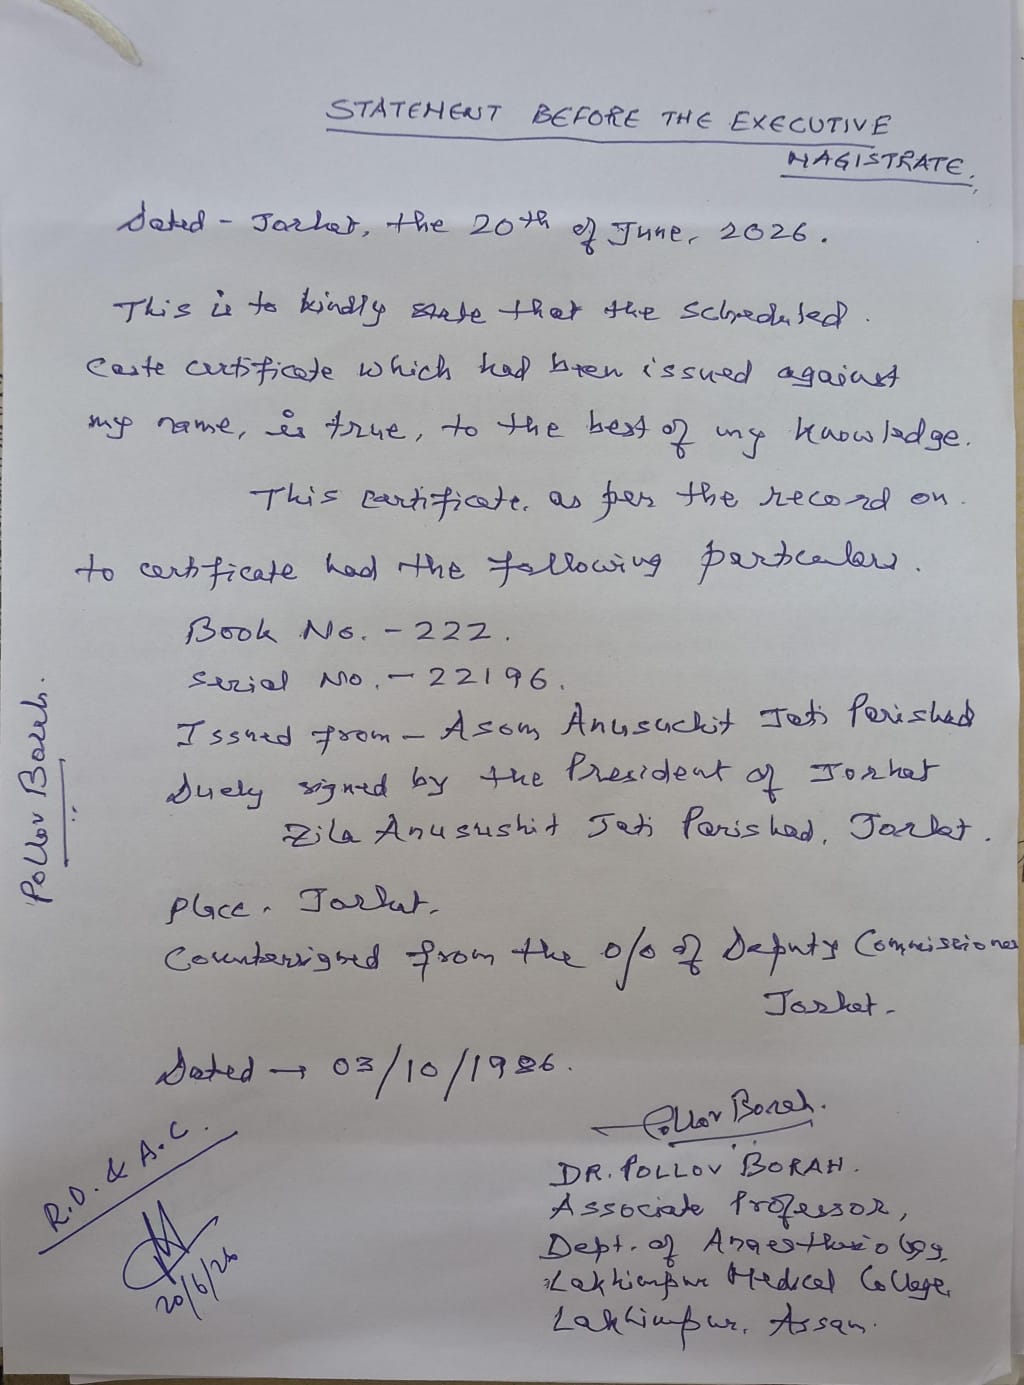 STATEMENT BEFORE THE EXECUTIVE
MAGISTRATE.
Dated - Jorhat, the 20th of June, 2026.
This is to kindly state that the scheduled
caste certificate which had been issued against
my name, is true, to the best of my knowledge.
This certificate, as per the record on
to certificate had the following particulars.
Book No. - 222.
Serial No. - 22196.
Issued from - Asom Anusuchit Jati Parishad
Duely signed by the President of Jorhat
Zila Anusushit Jati Parishad, Jorhat.
Place. Jorhat.
Countersigned from the o/o of Deputy Commissioner
Jorhat.
Dated → 03/10/1986.
Pollov Borah.
DR. POLLOV BORAH.
Associate Professor,
Dept. of Anaesthesiology,
Lakhimpur Medical College,
Lakhimpur, Assam.
Pollov Borah.
R.O. & A.C.
20/6/26